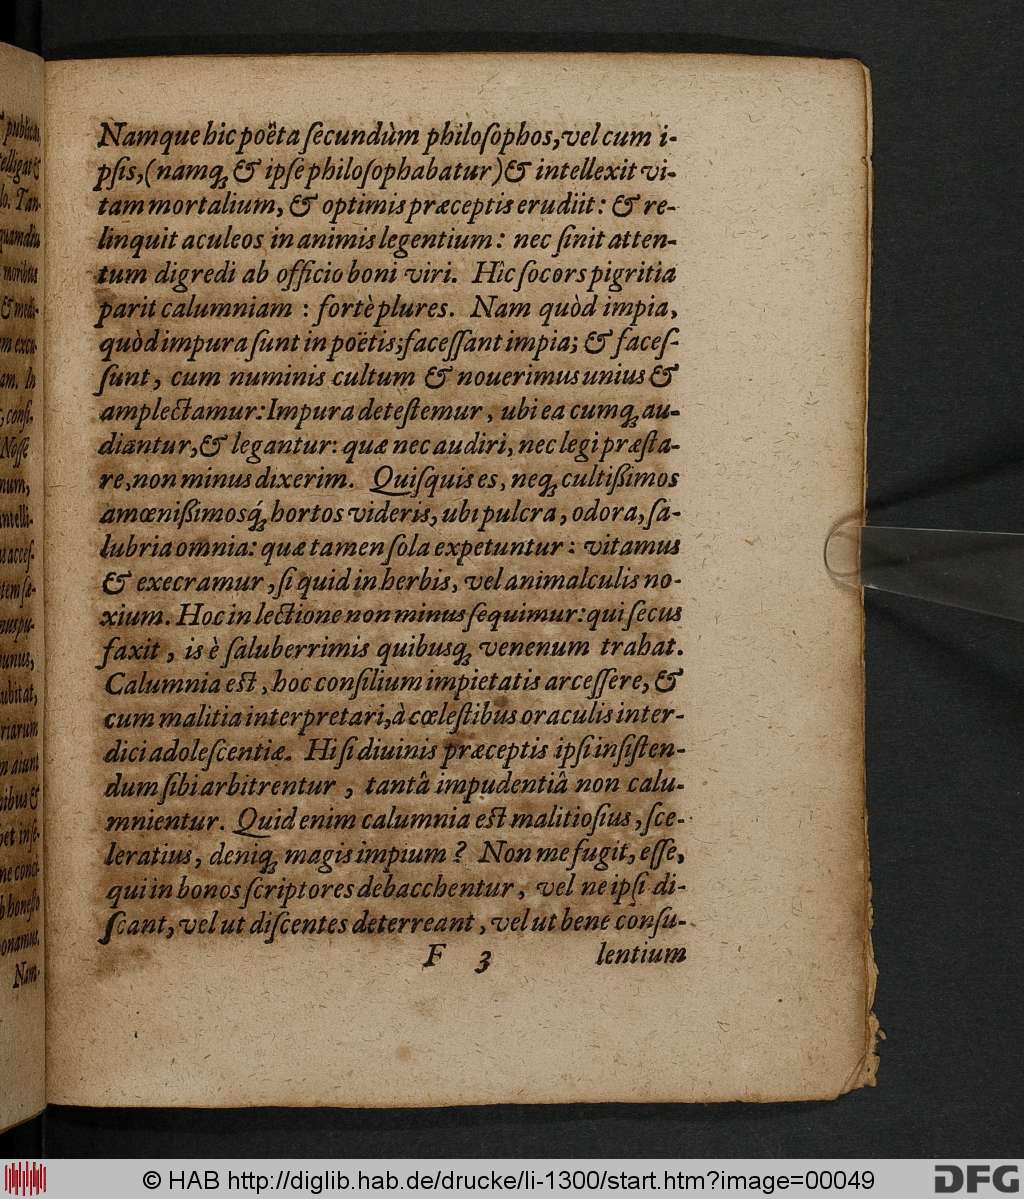 Namque hic poëta ſecundùm philoſophos, vel cum i-
pſis, (namq; & ipſe philoſophabatur) & intellexit vi-
tam mortalium, & optimis præceptis erudiit: & re-
linquit aculeos in animis legentium: nec ſinit atten-
tum digredi ab officio boni viri. Hîc ſocors pigritia
parit calumniam: fortè plures. Nam quòd impia,
quòd impura ſunt in poëtis; faceſſant impia; & faceſ-
ſunt, cum numinis cultum & nouerimus unius &
amplectamur: Impura deteſtemur, ubi ea cumq; au-
diantur, & legantur: quæ nec audiri, nec legi præſta-
re, non minus dixerim. Quiſquis es, neq; cultißimos
amœnißimosq́; hortos videris, ubi pulcra, odora, ſa-
lubria omnia: quæ tamen ſola expetuntur: vitamus
& execramur, ſi quid in herbis, vel animalculis no-
xium. Hoc in lectione non minus ſequimur: qui ſecus
faxit, is è ſaluberrimis quibusq; venenum trahat.
Calumnia eſt, hoc conſilium impietatis arceſſere, &
cum malitia interpretari, à cœleſtibus oraculis inter-
dici adoleſcentiæ. Hi ſi diuinis præceptis ipſi inſiſten-
dum ſibi arbitrentur, tantâ impudentiâ non calu-
mnientur. Quid enim calumnia eſt malitioſius, ſce-
leratius, deniq; magis impium? Non me fugit, eſſe,
qui in bonos ſcriptores debacchentur, vel ne ipſi di-
ſcant, vel ut diſcentes deterreant, vel ut bene conſu-
F 3 lentium
publicas,
lo. Tan-
moribus
& medi-
am. In
Noſſe
num,
intelli-
ubitat,
riarum
m aiunt
Nam-
© HAB http://diglib.hab.de/drucke/li-1300/start.htm?image=00049
DFG